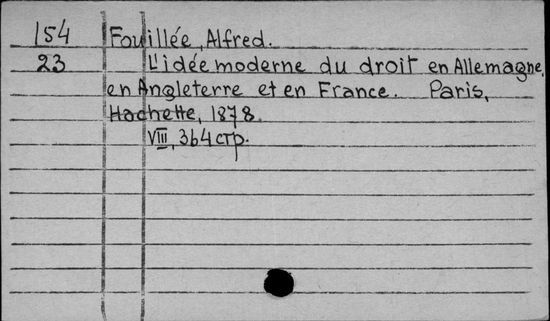 154 Fouillée, Alfred.
23 L'idée moderne du droit en Allemagne,
en Angleterre et en France. Paris,
Hachette, 1878.
VIII, 364 стр.